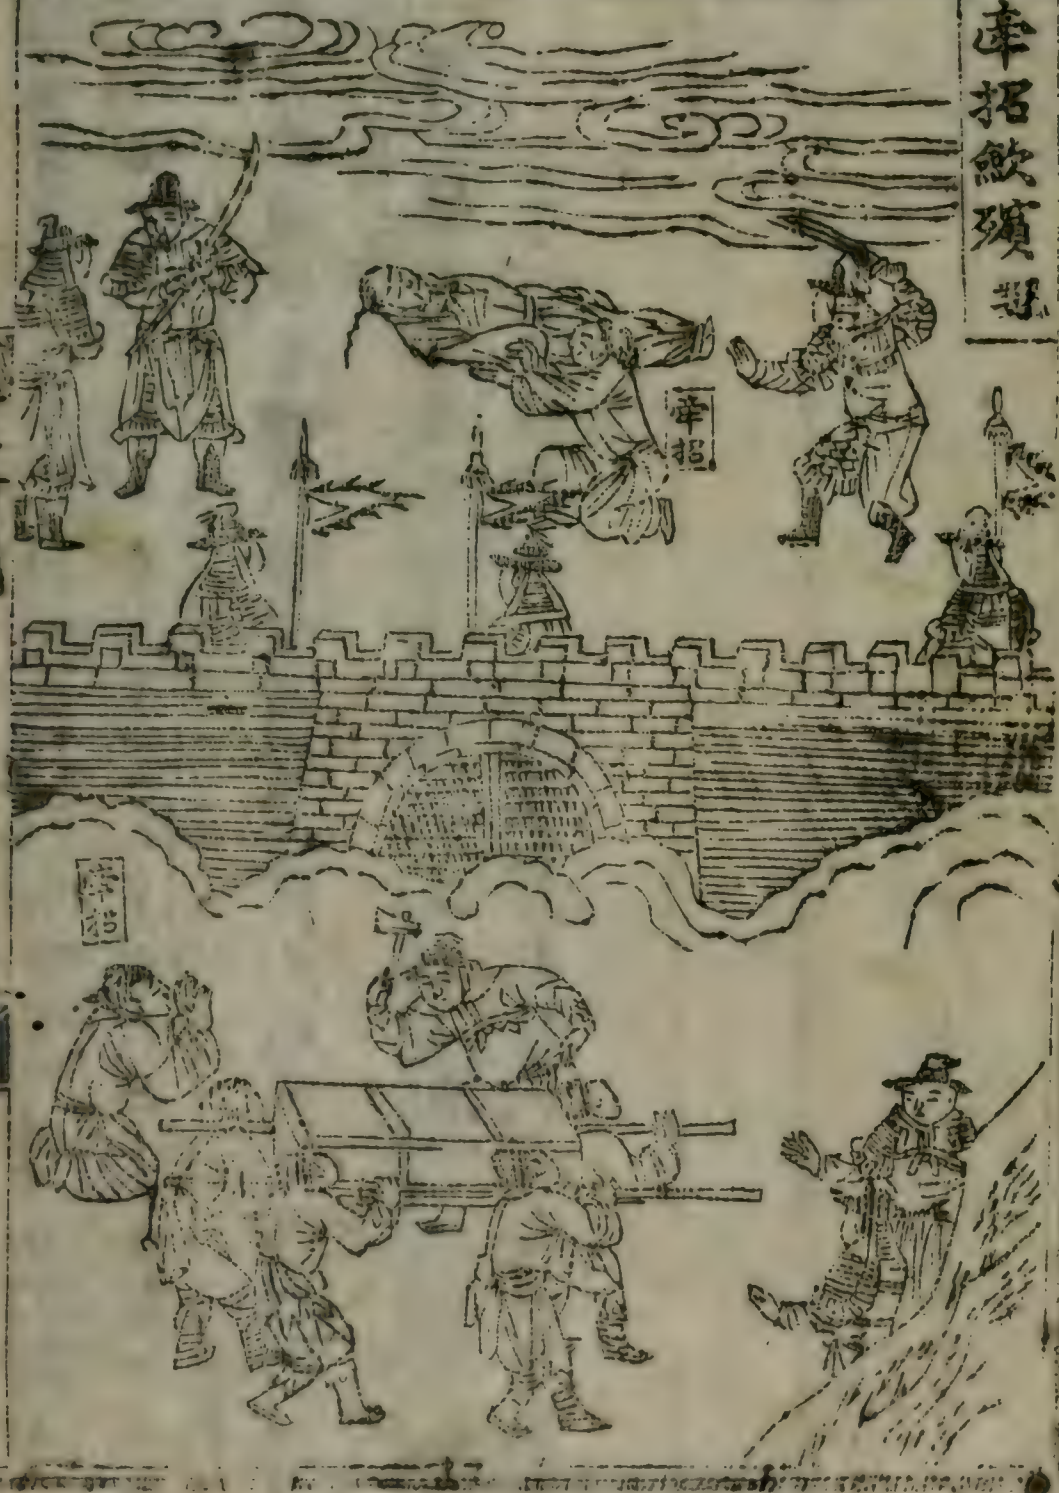 牽招斂殯 魏
牽招
牽招